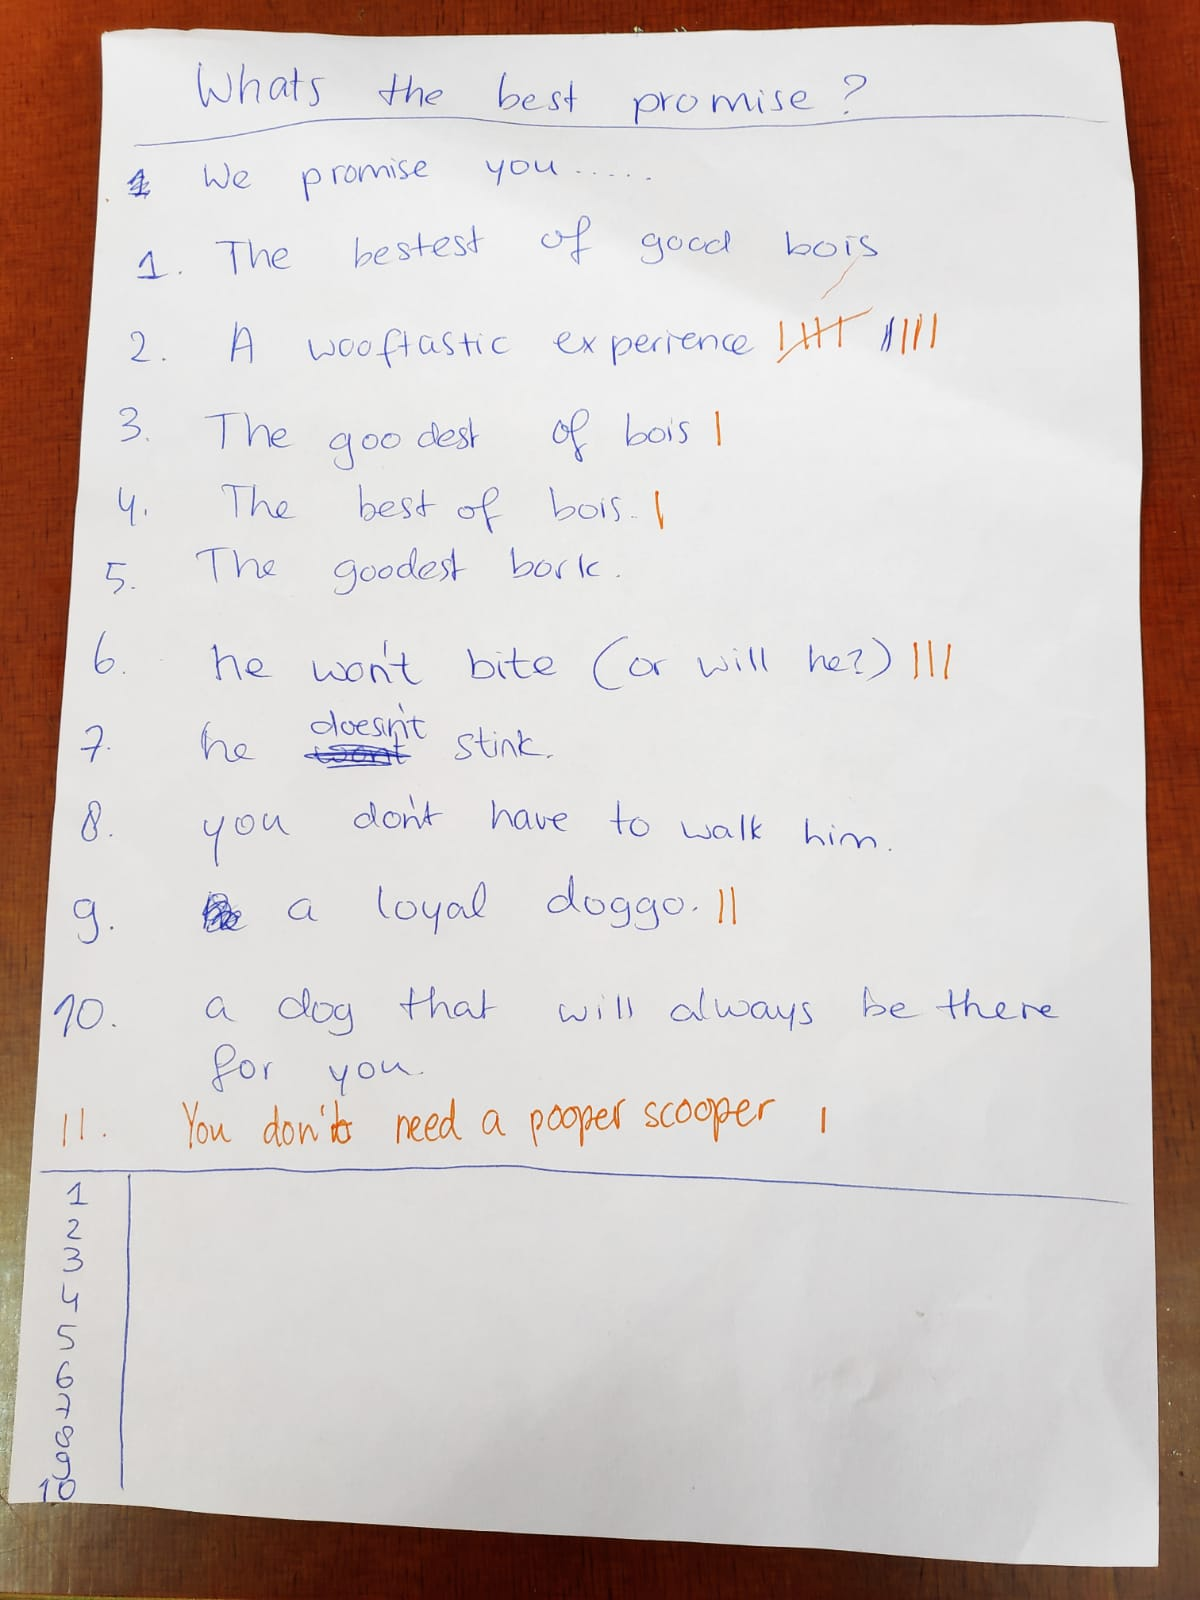 Whats the best promise?
We promise you.....
1. The bestest of good bois
2. A wooftastic experience
3. The goodest of bois
4. The best of bois.
5. The goodest bork.
6. he won't bite (or will he?)
7. he doesn't stink.
8. you don't have to walk him.
9. a loyal doggo.
10. a dog that will always be there
for you.
11. You don't need a pooper scooper
1
2
3
4
5
6
7
8
9
10